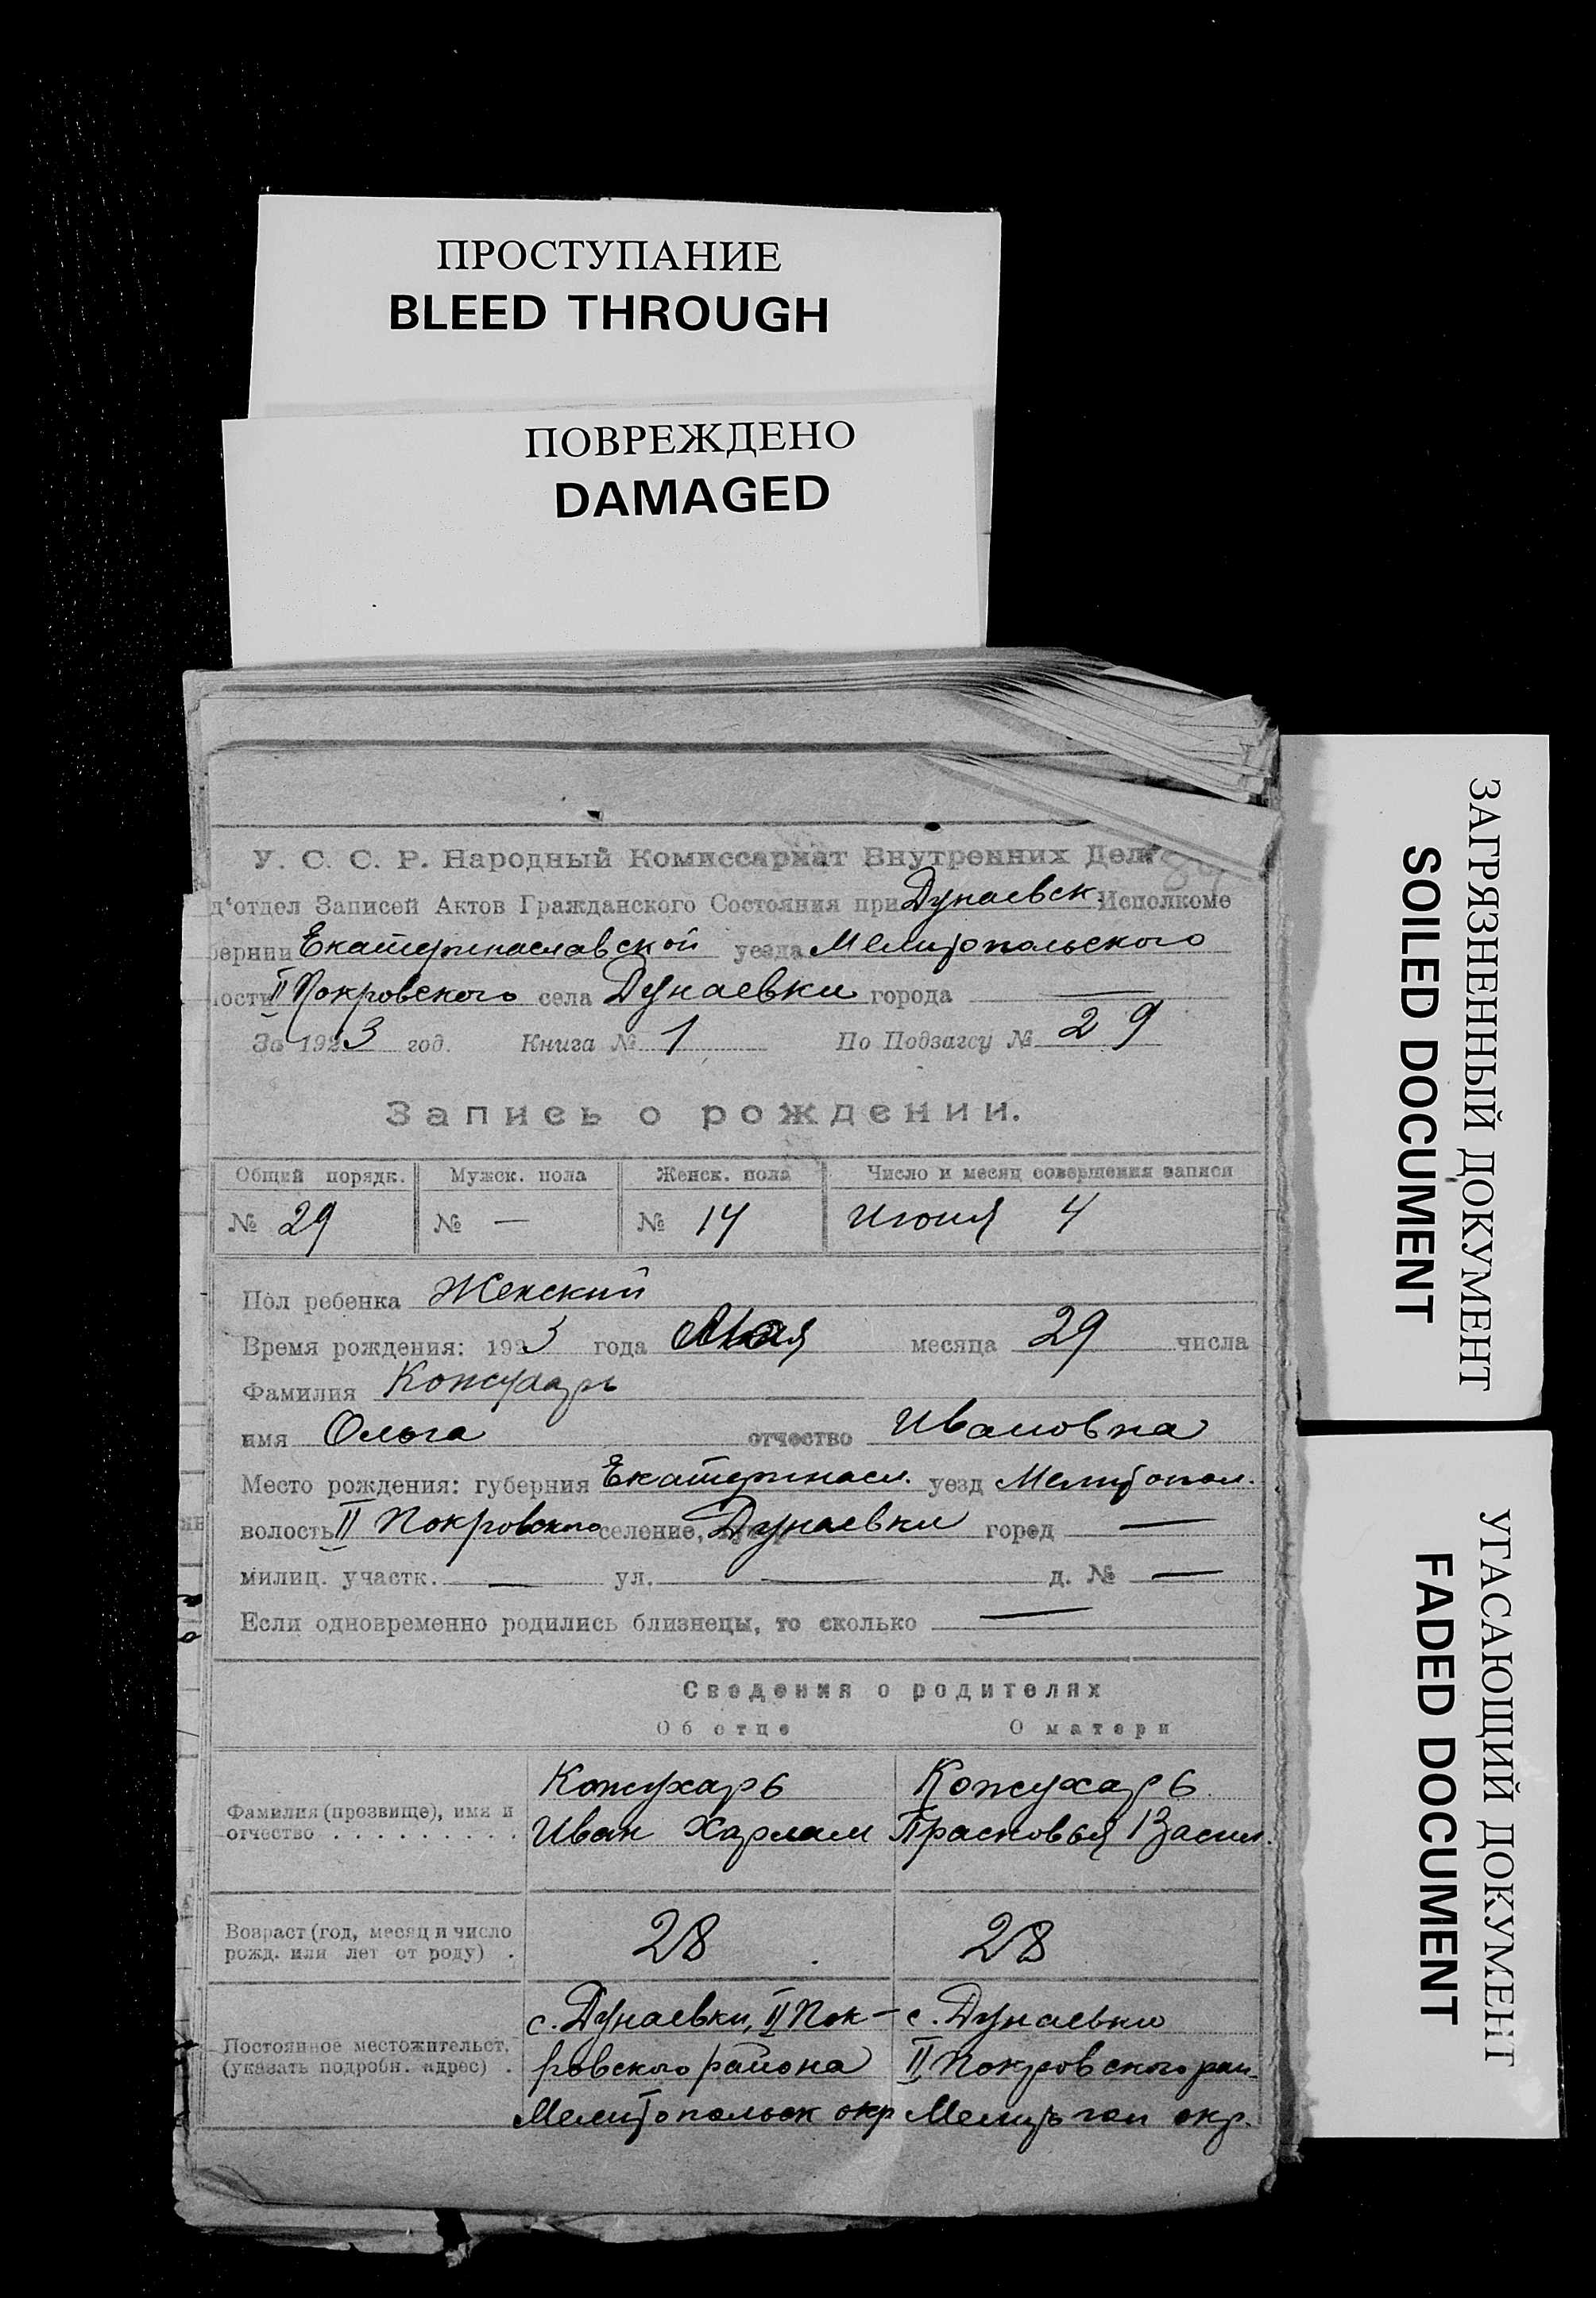 ПРОСТУПАНИЕ
BLEED THROUGH
ПОВРЕЖДЕНО
DAMAGED
У. С. С. Р. Народный Комиссариат Внутренних Дел.
д'отдел Записей Актов Гражданского Состояния при Дунаевск. Исполкоме
бернии Екатеринославской уезда Мелитопольского
лости II Покровского села Дунаевки города —
За 1923 год. Книга № 1 По Подзагсу № 29
Запись о рождении.
Общий порядк. Мужск. пола Женск. пола Число и месяц совершения записи
№ 29 № — № 14 Июня 4
Пол ребенка Женский
Время рождения: 1923 года Мая месяца 29 числа
Фамилия Кожухарь
имя Ольга отчество Ивановна
Место рождения: губерния Екатеринасл. уезд Мелитопол.
волость II Покровского селение, Дунаевки город —
милиц. участк. — ул. — д. № —
Если одновременно родились близнецы, то сколько —
Сведения о родителях
Об отце О матери
Фамилия (прозвище), имя и отчество . . . . . . . . .
Кожухарь
Иван Харлам
Кожухарь
Прасковья Васил.
Возраст (год, месяц и число
рожд. или лет от роду) .
28 28
Постоянное местожительст.
(указать подробн. адрес) .
с. Дунаевки, II Пок-
ровского района
Мелитопольск окр
с. Дунаевки
II Покровского рай.
Мелитоп окр.
ЗАГРЯЗНЕННЫЙ ДОКУМЕНТ
SOILED DOCUMENT
УГАСАЮЩИЙ ДОКУМЕНТ
FADED DOCUMENT